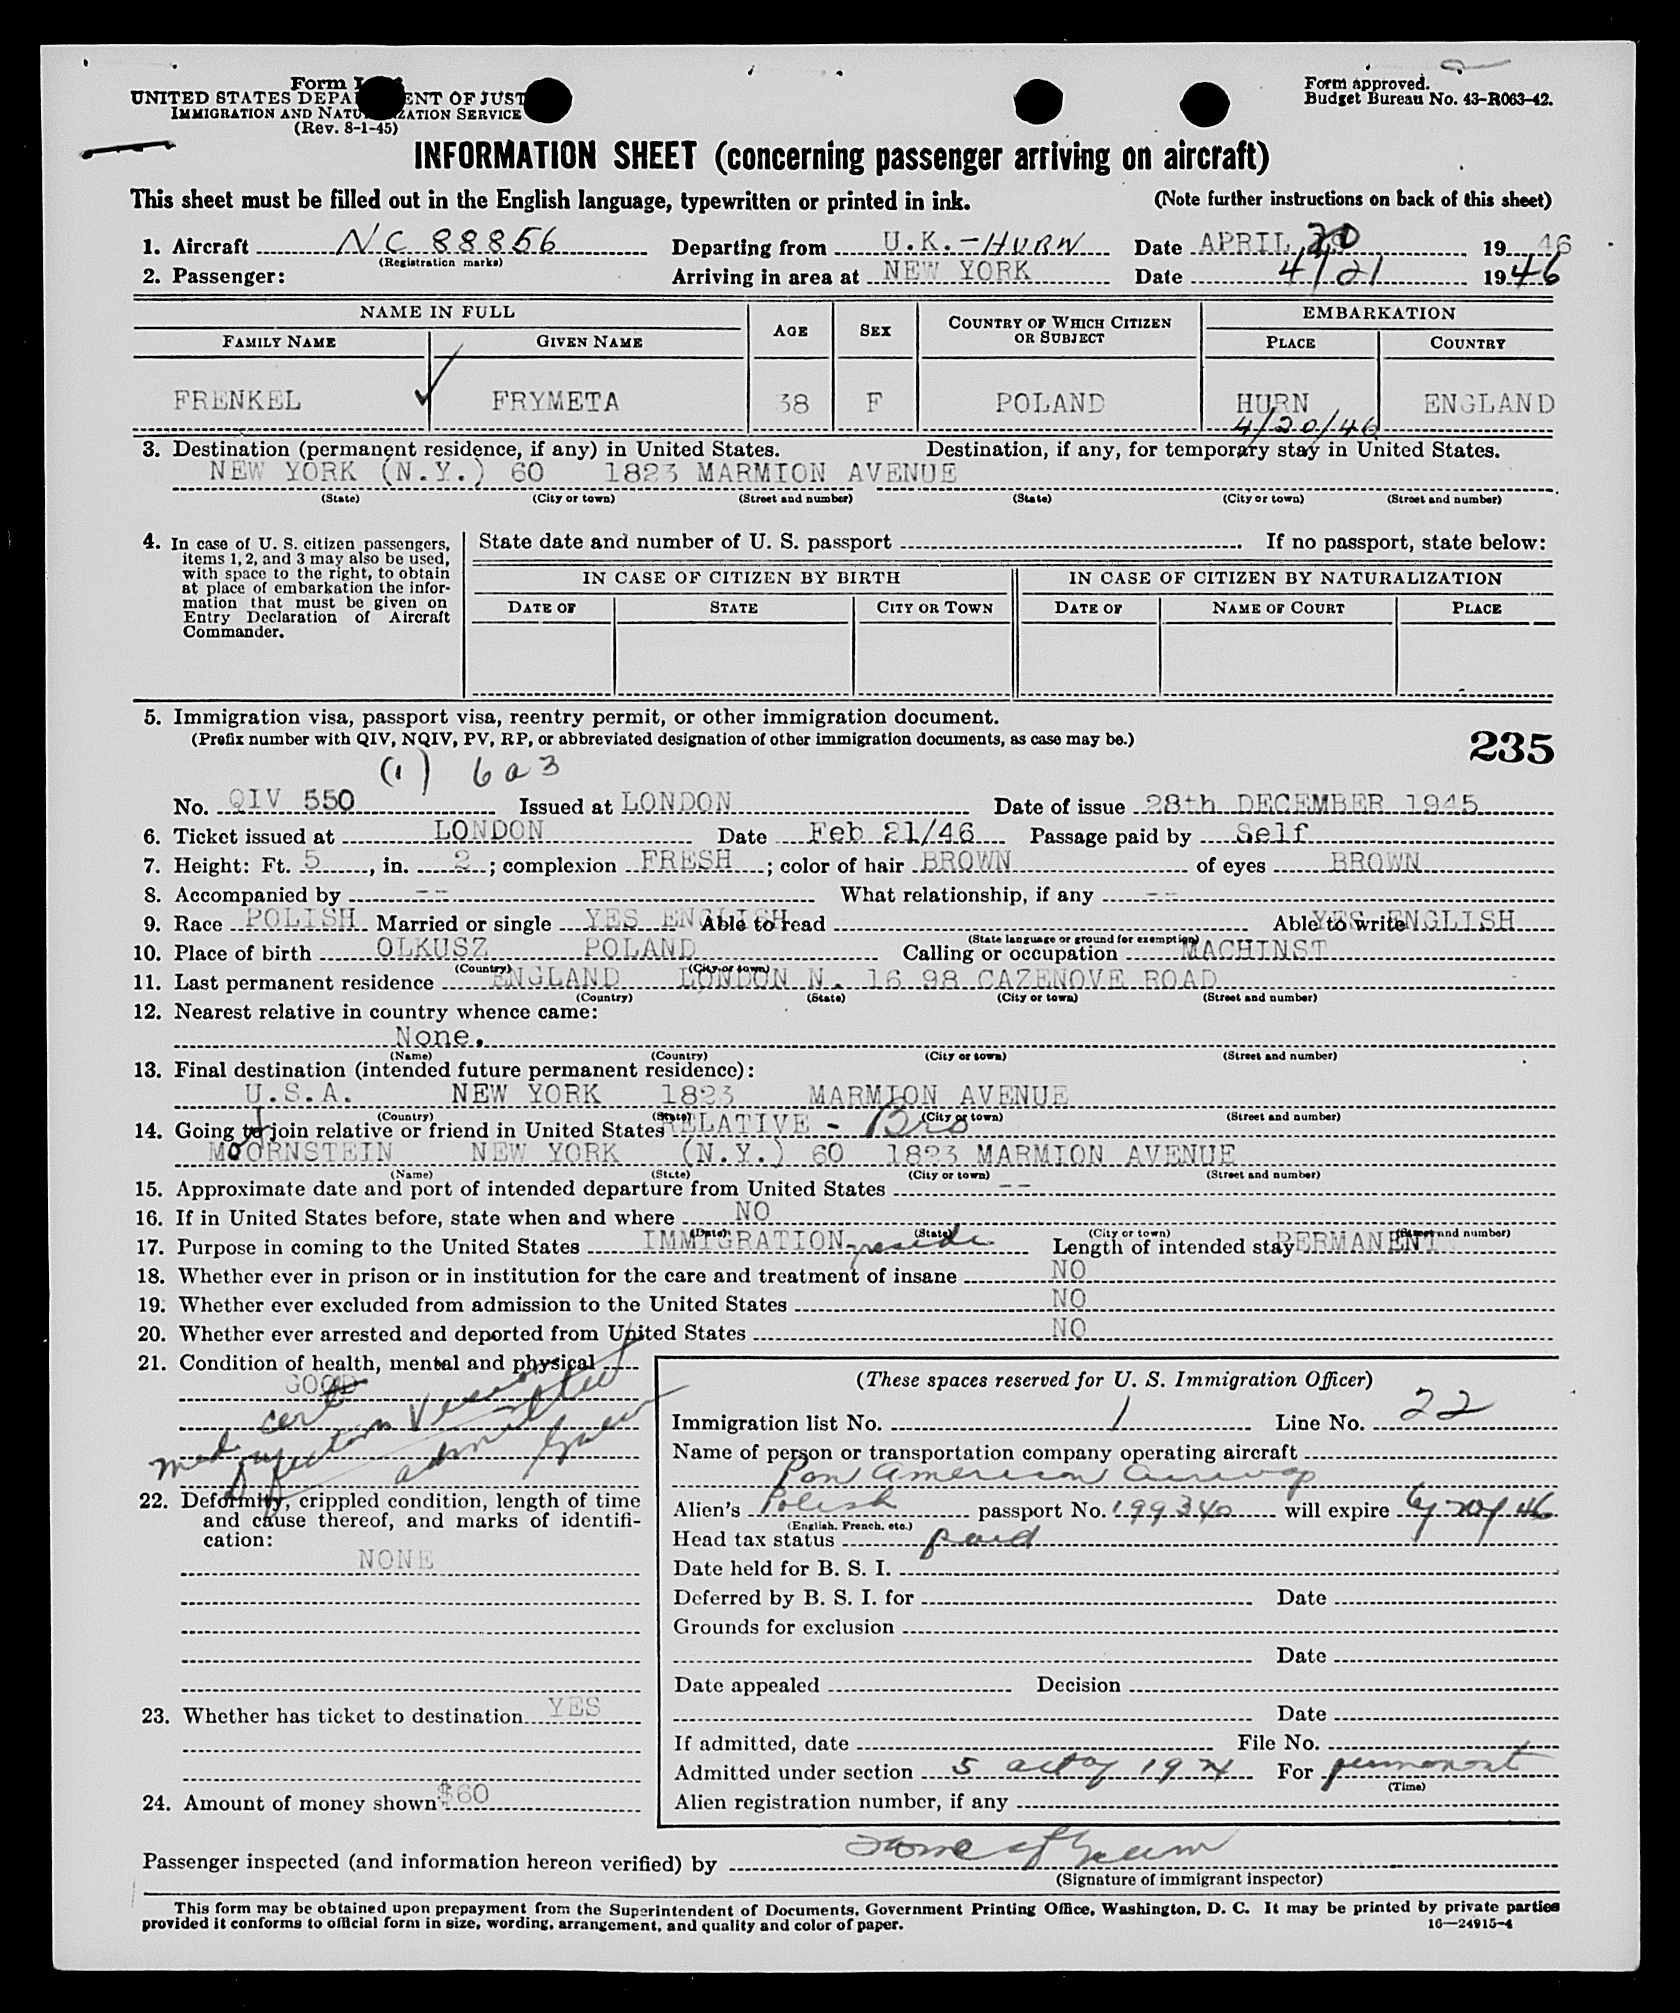 Form I-
UNITED STATES DEPA ENT OF JUST
IMMIGRATION AND NATU ZATION SERVICE
(Rev. 8-1-45)
Form approved.
Budget Bureau No. 43-R063-42.
INFORMATION SHEET (concerning passenger arriving on aircraft)
This sheet must be filled out in the English language, typewritten or printed in ink. (Note further instructions on back of this sheet)
1. Aircraft NC 88856 Departing from U.K.-HURN Date APRIL 20 1946
(Registration marks)
2. Passenger: Arriving in area at NEW YORK Date 4/21 1946
NAME IN FULL AGE SEX COUNTRY OF WHICH CITIZEN OR SUBJECT EMBARKATION
FAMILY NAME GIVEN NAME PLACE COUNTRY
FRENKEL FRYMETA 38 F POLAND HURN ENGLAND
4/20/46
3. Destination (permanent residence, if any) in United States. Destination, if any, for temporary stay in United States.
NEW YORK (N.Y.) 60 1823 MARMION AVENUE
(State) (City or town) (Street and number) (State) (City or town) (Street and number)
4. In case of U. S. citizen passengers, items 1, 2, and 3 may also be used, with space to the right, to obtain at place of embarkation the information that must be given on Entry Declaration of Aircraft Commander.
State date and number of U. S. passport If no passport, state below:
IN CASE OF CITIZEN BY BIRTH IN CASE OF CITIZEN BY NATURALIZATION
DATE OF STATE CITY OR TOWN DATE OF NAME OF COURT PLACE
5. Immigration visa, passport visa, reentry permit, or other immigration document.
(Prefix number with QIV, NQIV, PV, RP, or abbreviated designation of other immigration documents, as case may be.)
235
(1) 6a3
No. QIV 550 Issued at LONDON Date of issue 28th DECEMBER 1945
6. Ticket issued at LONDON Date Feb 21/46 Passage paid by Self
7. Height: Ft. 5, in. 2; complexion FRESH; color of hair BROWN of eyes BROWN
8. Accompanied by -- What relationship, if any --
9. Race POLISH Married or single YES ENGLISH Able to read Able to write YES ENGLISH
(State language or ground for exemption)
10. Place of birth OLKUSZ POLAND Calling or occupation MACHINST
(Country) (City or town)
11. Last permanent residence ENGLAND LONDON N. 16 98 CAZENOVE ROAD
(Country) (State) (City or town) (Street and number)
12. Nearest relative in country whence came:
None.
(Name) (Country) (City or town) (Street and number)
13. Final destination (intended future permanent residence):
U.S.A. NEW YORK 1823 MARMION AVENUE
(Country) (State) (City or town) (Street and number)
14. Going to join relative or friend in United States RELATIVE - Bro
MOORNSTEIN NEW YORK (N.Y.) 60 1823 MARMION AVENUE
(Name) (State) (City or town) (Street and number)
15. Approximate date and port of intended departure from United States --
16. If in United States before, state when and where NO
(Date) (State) (City or town) (Street and number)
17. Purpose in coming to the United States IMMIGRATION-reside Length of intended stay PERMANENT
18. Whether ever in prison or in institution for the care and treatment of insane NO
19. Whether ever excluded from admission to the United States NO
20. Whether ever arrested and deported from United States NO
21. Condition of health, mental and physical
GOOD
med cert
admitted
22. Deformity, crippled condition, length of time and cause thereof, and marks of identification:
NONE
23. Whether has ticket to destination YES
24. Amount of money shown $60
(These spaces reserved for U. S. Immigration Officer)
Immigration list No. 1 Line No. 22
Name of person or transportation company operating aircraft
Pan American Airways
Alien's Polish passport No. 199340 will expire 6/20/46
(English, French, etc.)
Head tax status paid
Date held for B. S. I.
Deferred by B. S. I. for Date
Grounds for exclusion
Date
Date appealed Decision
Date
If admitted, date File No.
Admitted under section 5 act of 1924 For permanent
(Time)
Alien registration number, if any
Passenger inspected (and information hereon verified) by
(Signature of immigrant inspector)
This form may be obtained upon prepayment from the Superintendent of Documents, Government Printing Office, Washington, D. C. It may be printed by private parties
provided it conforms to official form in size, wording, arrangement, and quality and color of paper. 16—24915-4